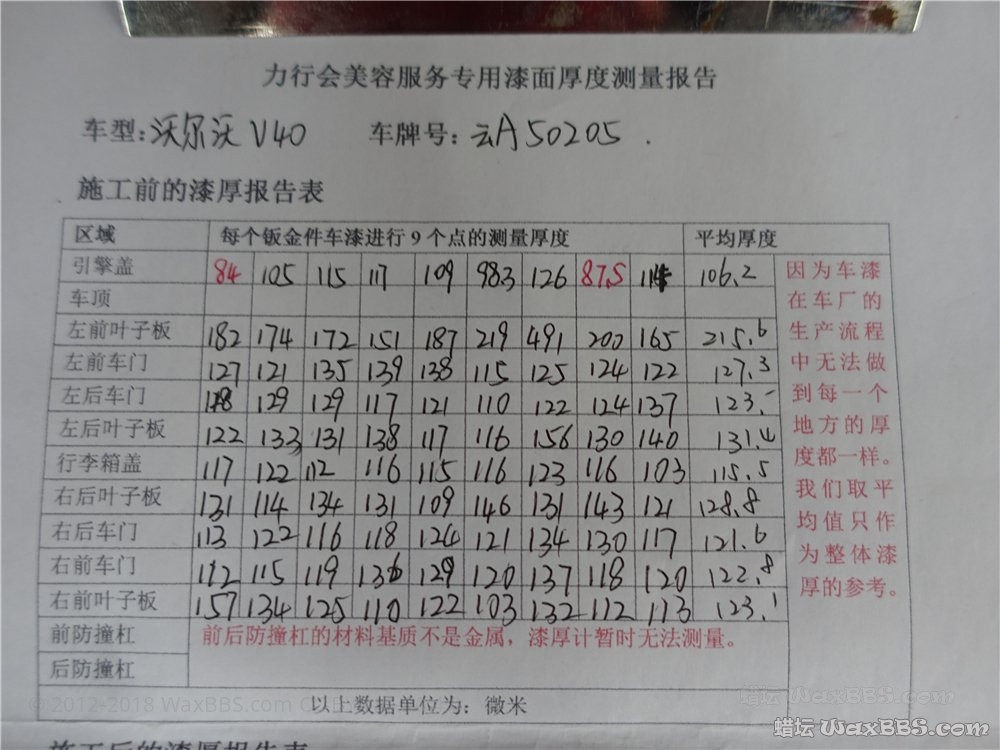 力行会美容服务专用漆面厚度测量报告
车型:沃尔沃 V40 车牌号:云A50205.
施工前的漆厚报告表
区域 每个钣金件车漆进行9个点的测量厚度 平均厚度
引擎盖 84 105 115 117 109 98.3 126 87.5 106.2
车顶
左前叶子板 182 174 172 151 187 219 491 200 165 215.6
左前车门 127 121 135 139 138 115 125 124 122 127.3
左后车门 129 129 117 121 110 122 124 137 123.
左后叶子板 122 133 131 138 117 116 156 130 140 131.4
行李箱盖 117 122 112 116 115 116 123 116 103 115.5
右后叶子板 131 114 134 131 109 146 131 143 121 128.8
右后车门 113 122 116 118 124 121 134 130 117 121.6
右前车门 112 115 119 136 129 120 137 118 120 122.8
右前叶子板 157 134 125 110 122 103 132 112 113 123.1
前防撞杠 前后防撞杠的材料基质不是金属，漆厚计暂时无法测量。
后防撞杠
以上数据单位为：微米
因为车漆
在车厂的
生产流程
中无法做
到每一个
地方的厚
度都一样。
我们取平
均值只作
为整体漆
厚的参考。
施工后的漆厚报告表
© 2012-2018 WaxBBS.com
蜡坛 WaxBBS.com
蜡坛 WaxBBS.com